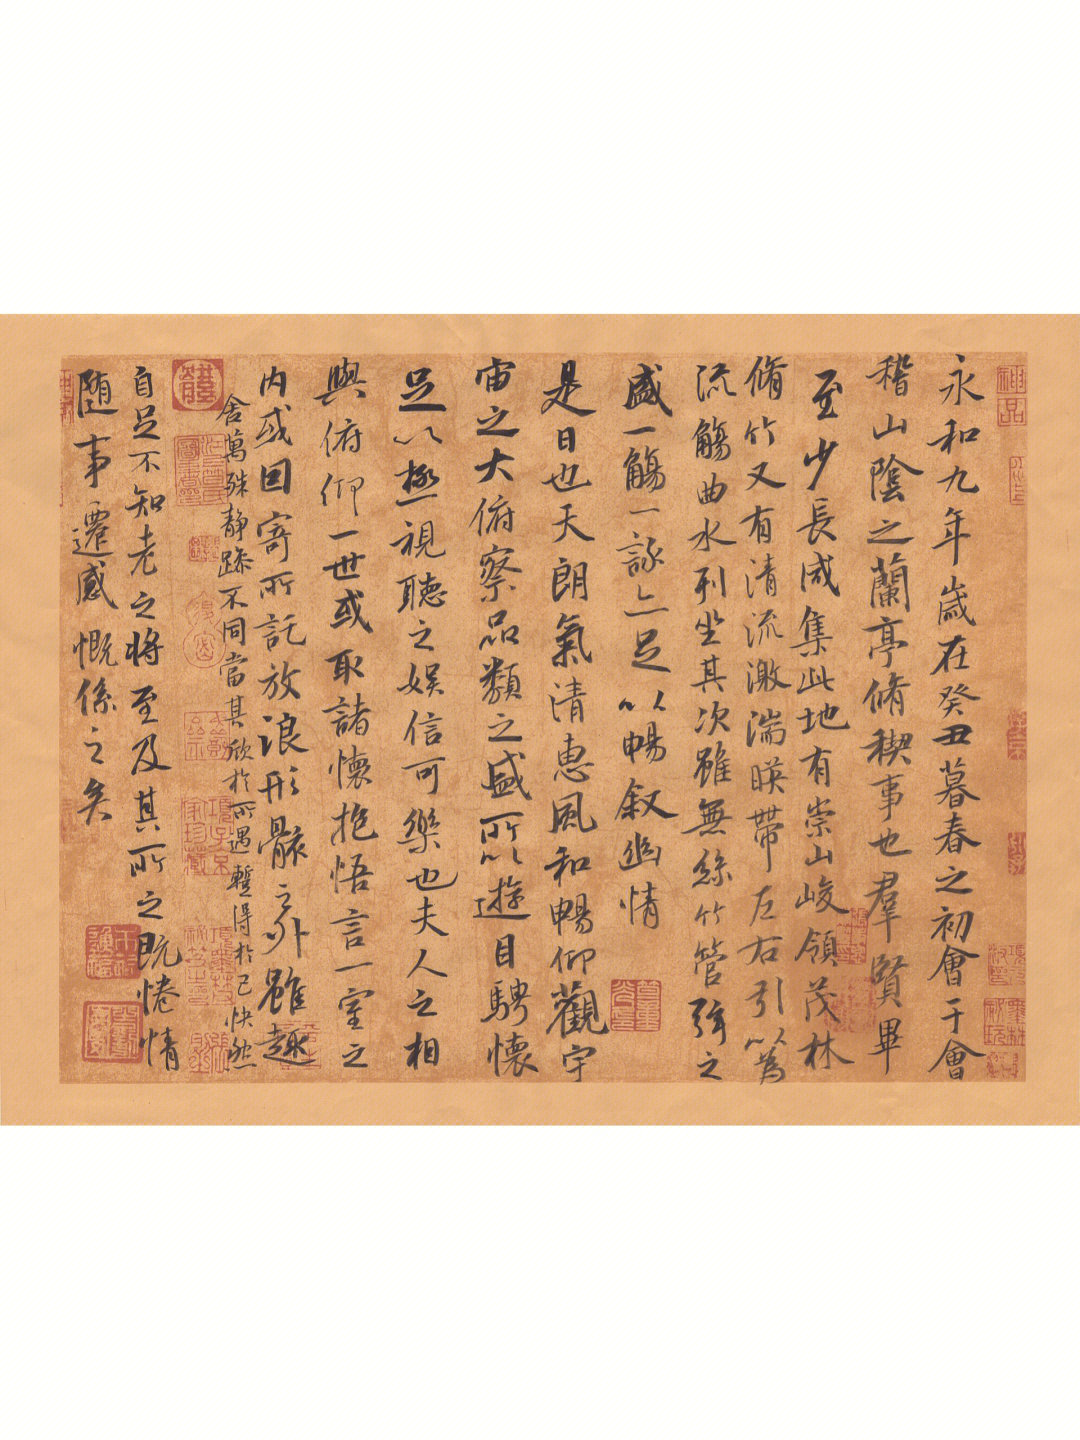 永和九年歲在癸丑暮春之初會于會
稽山陰之蘭亭脩稧事也羣賢畢
至少長咸集此地有崇山峻領茂林
脩竹又有清流激湍暎帶左右引以為
流觴曲水列坐其次雖無絲竹管弦之
盛一觴一詠亦足以暢叙幽情
是日也天朗氣清惠風和暢仰觀宇
宙之大俯察品類之盛所以遊目騁懷
足以極視聽之娛信可樂也夫人之相
與俯仰一世或取諸懷抱悟言一室之
內或因寄所託放浪形骸之外雖趣
舍萬殊静躁不同當其欣於所遇暫得於己快然
自足不知老之將至及其所之既惓情
随事遷感慨係之矣
神品